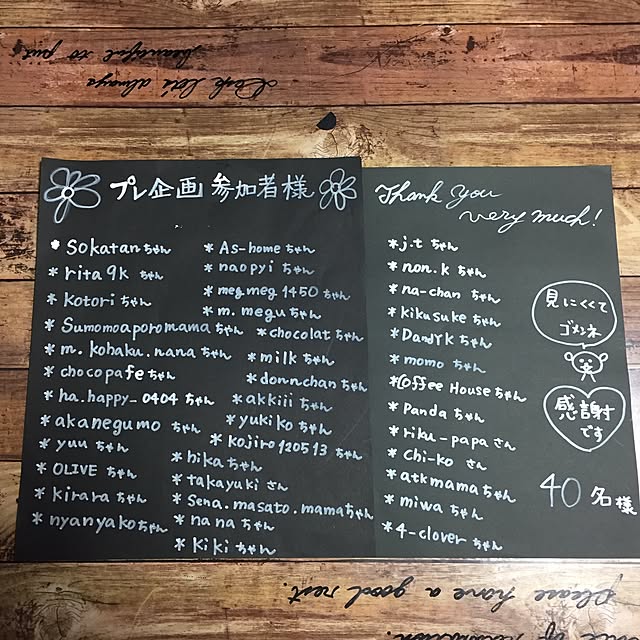 Look let's always
beautiful to just
プレ企画 参加者様
* Sokatanちゃん
* rita9k ちゃん
* Kotori ちゃん
* Sumomoaporomama ちゃん
* m.kohaku.nana ちゃん
* chocopafeちゃん
* ha.happy_0404 ちゃん
* akanegumo ちゃん
* yuu ちゃん
* OLIVE ちゃん
* kirara ちゃん
* nyanyakoちゃん
* As-home ちゃん
* naopyi ちゃん
* meg.meg1450 ちゃん
* m.megu ちゃん
* chocolat ちゃん
* milk ちゃん
* donnchan ちゃん
* akkiii ちゃん
* yukiko ちゃん
* kojiro120513 ちゃん
* hikaちゃん
* takayuki さん
* Sena.masato.mamaちゃん
* nanaちゃん
* Kiki ちゃん
Thank you
very much!
* j.t ちゃん
* non.k ちゃん
* na-chan ちゃん
* kikusuke ちゃん
* DandYk ちゃん
* momo ちゃん
* Coffee Houseちゃん
* Panda ちゃん
* riku-papa さん
* chi-ko さん
* atkmamaちゃん
* miwa ちゃん
* 4-clover ちゃん
見にくくて
ゴメンネ
感謝
です
40名様
please have a good rest.